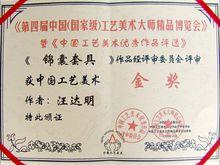 《第四届中国(国家级)工艺美术大师精品博览会》
暨《中国工艺美术优秀作品评选》
《锦囊套具》作品经评审委员会评审
获中国工艺美术金奖
作者:汪达明
特此颁证